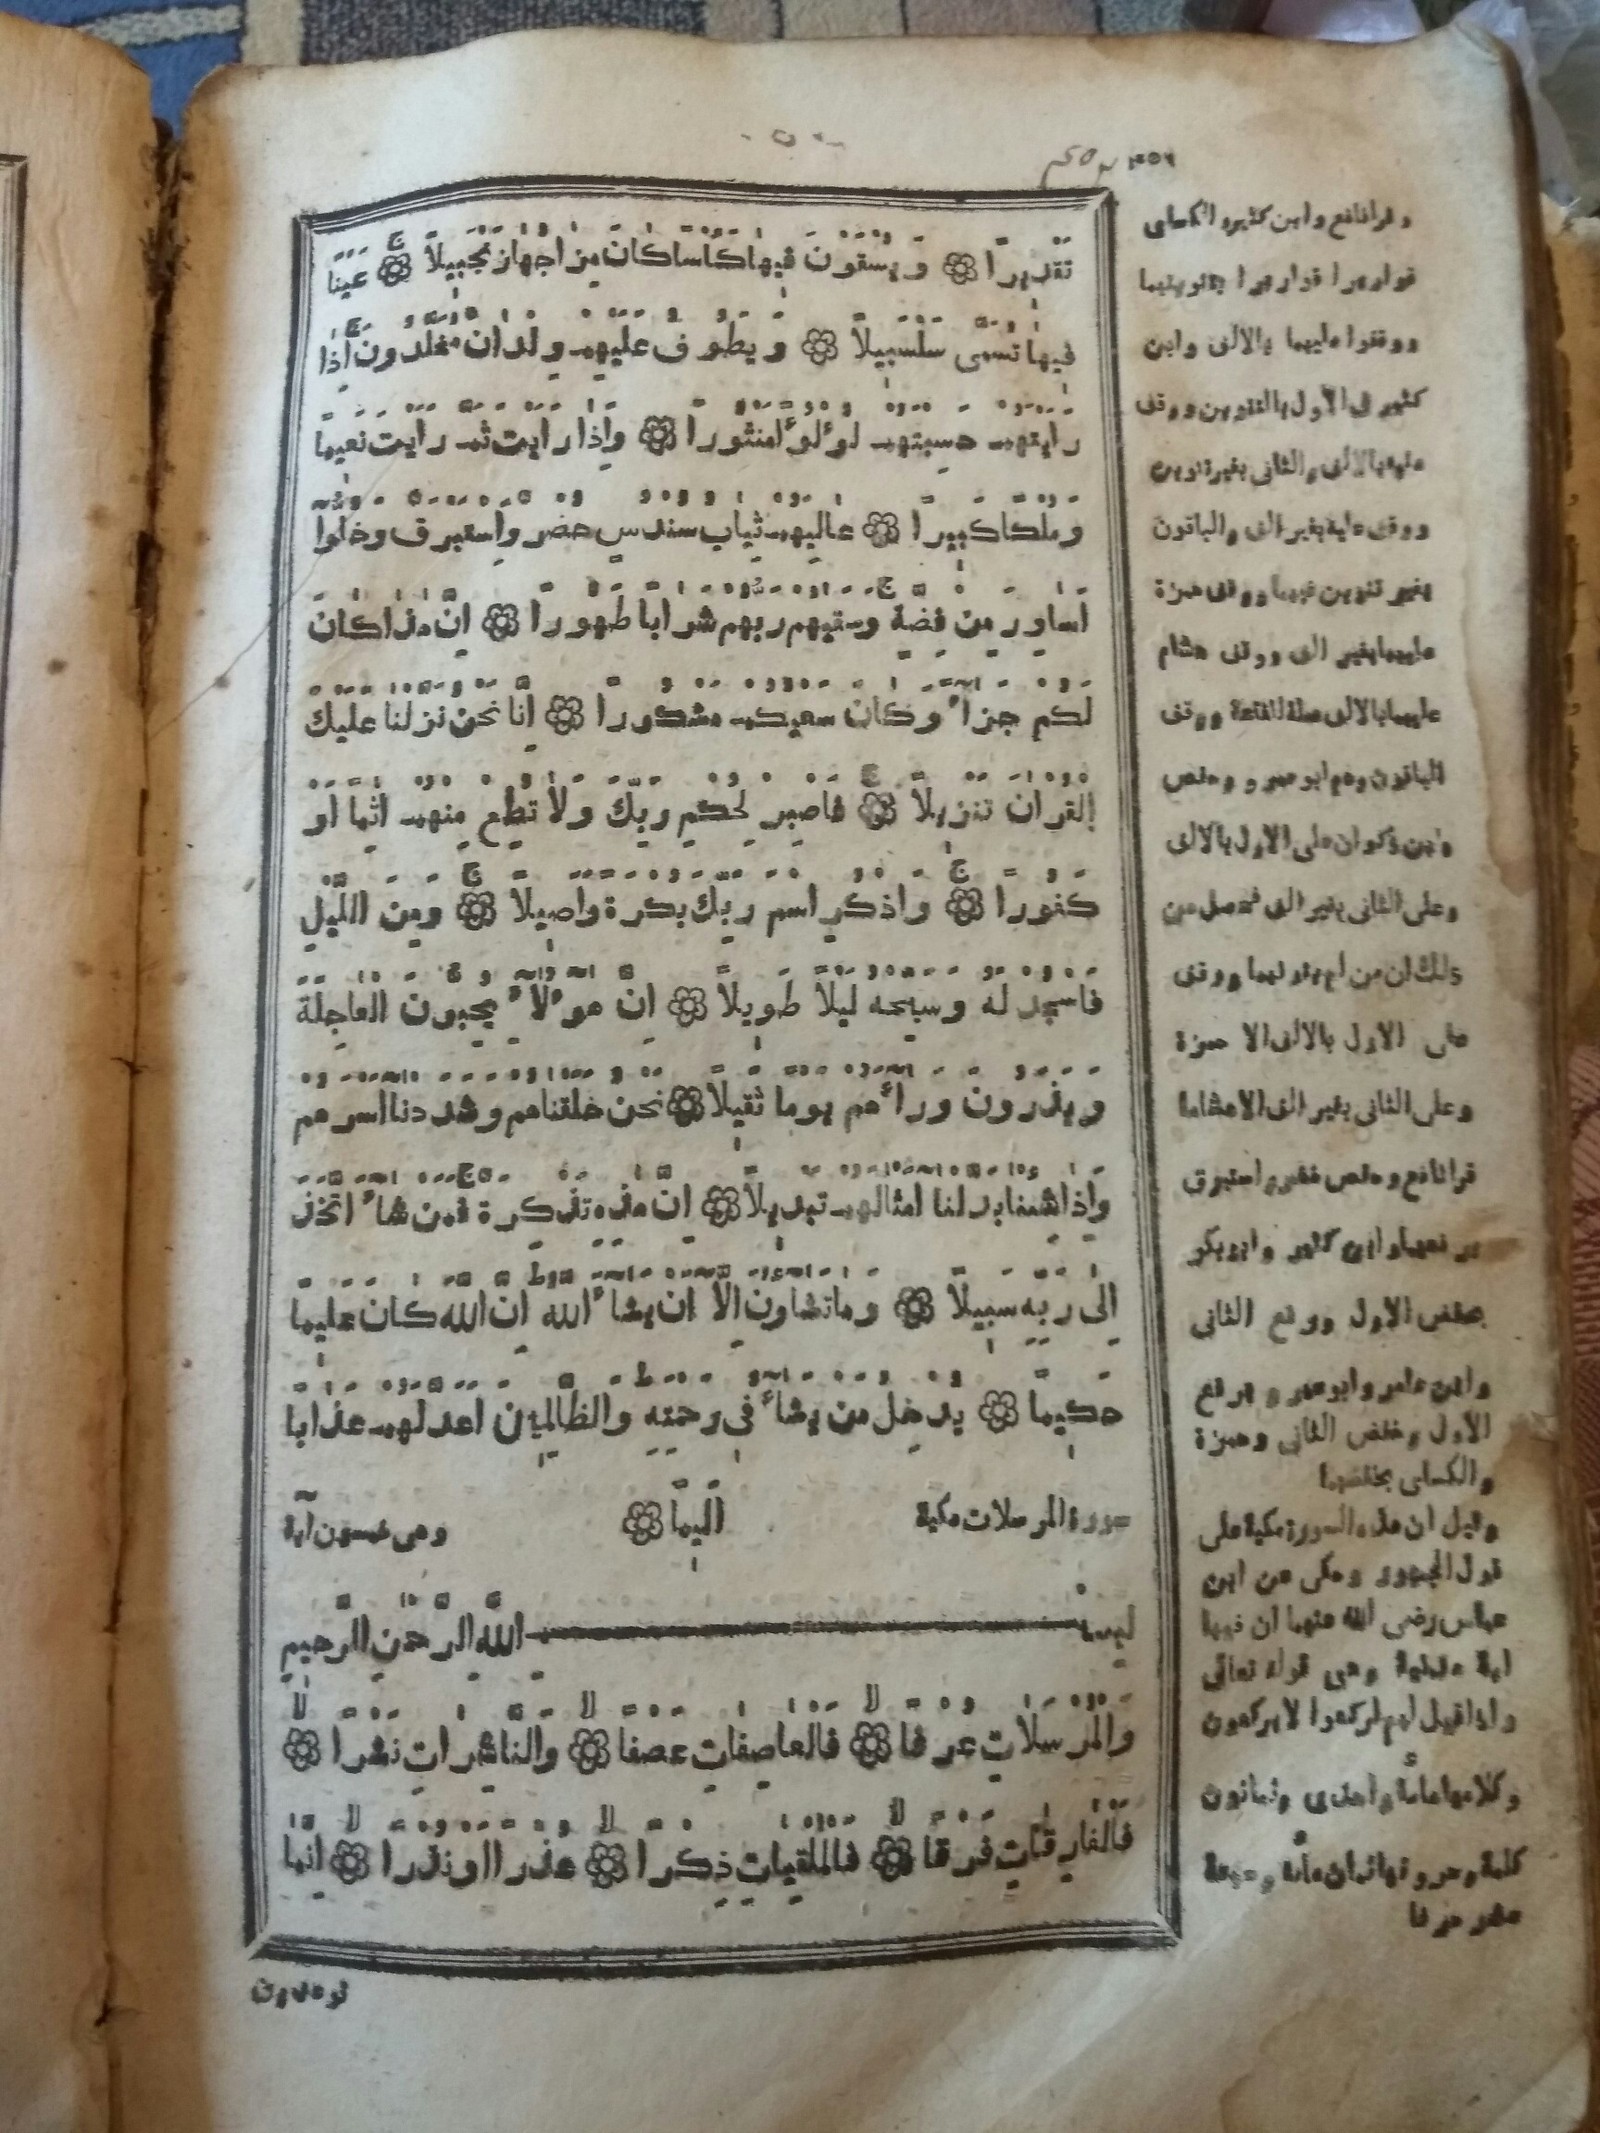 ٤٥٦
تَقْدِيرًا وَيُسْقَوْنَ فِيهَا كَأْسًا كَانَ مِزَاجُهَا زَنْجَبِيلًا ج عَيْنًا
فِيهَا تُسَمَّى سَلْسَبِيلًا وَيَطُوفُ عَلَيْهِمْ وِلْدَانٌ مُخَلَّدُونَ ج إِذَا
رَأَيْتَهُمْ حَسِبْتَهُمْ لُؤْلُؤًا مَنْثُورًا وَإِذَا رَأَيْتَ ثَمَّ رَأَيْتَ نَعِيمًا
وَمُلْكًا كَبِيرًا عَالِيَهُمْ ثِيَابُ سُنْدُسٍ خُضْرٌ وَإِسْتَبْرَقٌ وَحُلُّوا
أَسَاوِرَ مِنْ فِضَّةٍ ج وَسَقَيهُمْ رَبُّهُمْ شَرَابًا طَهُورًا إِنَّ هٰذَا كَانَ
لَكُمْ جَزَاءً وَكَانَ سَعْيُكُمْ مَشْكُورًا إِنَّا نَحْنُ نَزَّلْنَا عَلَيْكَ
الْقُرْاٰنَ تَنْزِيلًا ج فَاصْبِرْ لِحُكْمِ رَبِّكَ وَلَا تُطِعْ مِنْهُمْ اٰثِمًا أَوْ
كَفُورًا ج وَاذْكُرِ اسْمَ رَبِّكَ بُكْرَةً وَأَصِيلًا ج وَمِنَ اللَّيْلِ
فَاسْجُدْ لَهُ وَسَبِّحْهُ لَيْلًا طَوِيلًا إِنَّ هٰؤُلَاءِ يُحِبُّونَ الْعَاجِلَةَ
وَيَذَرُونَ وَرَاءَهُمْ يَوْمًا ثَقِيلًا نَحْنُ خَلَقْنَاهُمْ وَشَدَدْنَا أَسْرَهُمْ
وَإِذَا شِئْنَا بَدَّلْنَا أَمْثَالَهُمْ تَبْدِيلًا إِنَّ هٰذِهِ تَذْكِرَةٌ ج فَمَنْ شَاءَ اتَّخَذَ
إِلٰى رَبِّهِ سَبِيلًا وَمَا تَشَاؤُنَ إِلَّا أَنْ يَشَاءَ اللّٰهُ ط إِنَّ اللّٰهَ كَانَ عَلِيمًا
حَكِيمًا يُدْخِلُ مَنْ يَشَاءُ فِي رَحْمَتِهِ ط وَالظَّالِمِينَ أَعَدَّ لَهُمْ عَذَابًا
سورة المرسلات مكية أَلِيمًا وهى خمسون آية
بِسْمِ اللّٰهِ الرَّحْمٰنِ الرَّحِيمِ
وَالْمُرْسَلَاتِ عُرْفًا لا فَالْعَاصِفَاتِ عَصْفًا لا وَالنَّاشِرَاتِ نَشْرًا لا
فَالْفَارِقَاتِ فَرْقًا لا فَالْمُلْقِيَاتِ ذِكْرًا لا عُذْرًا أَوْ نُذْرًا لا إِنَّمَا
توعدون
وقرا نافع وابن كثير والكسائى
قواريرا قواريرا بتنوينهما
ووقفوا عليهما بالالف وابن
كثير فى الاول بالتنوين ووقف
عليه بالالف والثانى بغير تنوين
ووقف عليه بغير الف والباقون
بغير تنوين فيهما ووقف حمزة
عليهما بغير الف ووقف هشام
عليهما بالالف صلة للفتحة ووقف
الباقون وهم ابو عمرو وحفص
وابن ذكوان على الاول بالالف
وعلى الثانى بغير الف فحصل من
ذلك ان من لم ينونهما ووقف
على الاول بالالف الا حمزة
وعلى الثانى بغير الف الا هشاما
قرا نافع وحفص خضر واستبرق
برفعهما وابن كثير وابو بكر
بخفض الاول ورفع الثانى
وابن عامر وابو عمرو برفع
الاول وخفض الثانى وحمزة
والكسائى بخفضهما
وقيل ان هذه السورة مكية على
قول الجمهور وحكى عن ابن
عباس رضى الله عنهما ان فيها
اية مدنية وهى قوله تعالى
واذا قيل لهم اركعوا لا يركعون
وكلامها مائة واحدى وثمانون
كلمة وحروفها ثمان مائة وستة
عشر حرفا